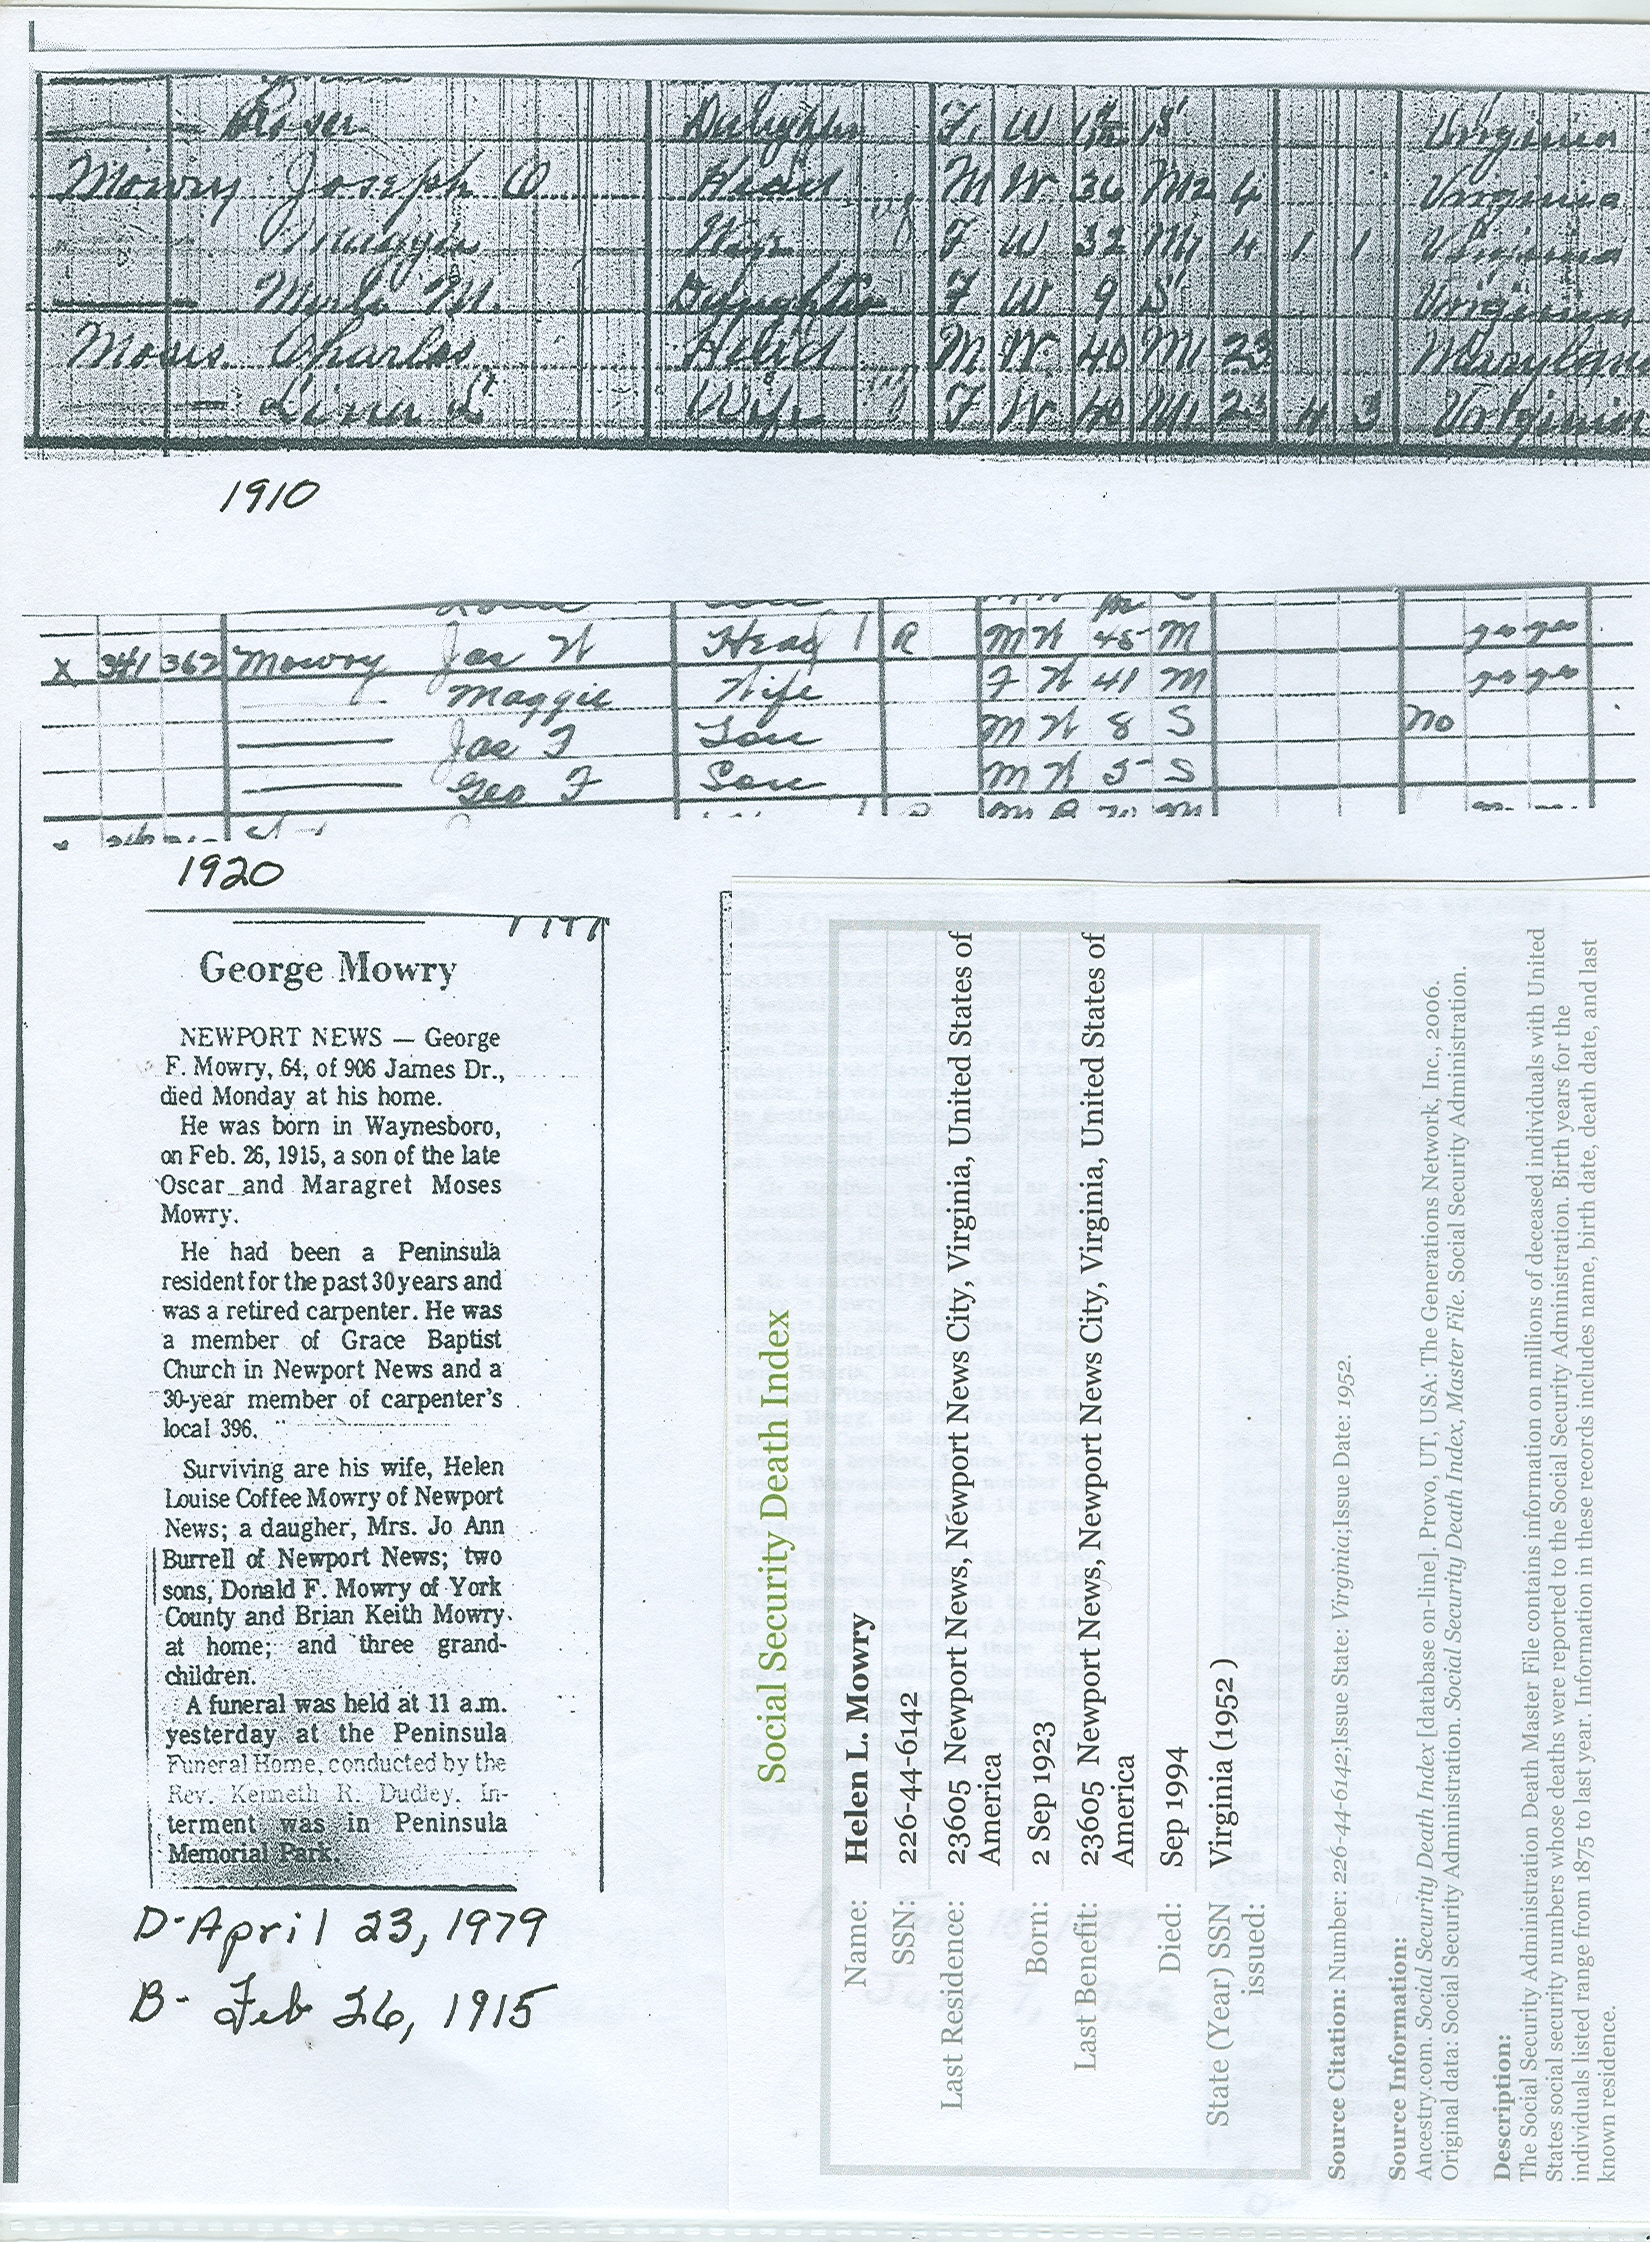 Daughter F W S Virginia
Mowry Joseph O Head M W 36 M2 4 Virginia
Maggie Wife F W 32 M1 4 1 1 Virginia
M. Daughter F W 9 S Virginia
Moses Charles Head M W 40 M1 23 Maryland
Lena S Wife F W 40 M1 23 4 3 Virginia
1910
X 341 362 Mowry Jas W Head 1 R M W 45 M
Maggie Wife F W 41 M
Jas F Son M W 8 S no
Geo F Son M W 5 S
1920
George Mowry
NEWPORT NEWS — George
F. Mowry, 64, of 906 James Dr.,
died Monday at his home.
He was born in Waynesboro,
on Feb. 26, 1915, a son of the late
Oscar and Maragret Moses
Mowry.
He had been a Peninsula
resident for the past 30 years and
was a retired carpenter. He was
a member of Grace Baptist
Church in Newport News and a
30-year member of carpenter's
local 396.
Surviving are his wife, Helen
Louise Coffee Mowry of Newport
News; a daugher, Mrs. Jo Ann
Burrell of Newport News; two
sons, Donald F. Mowry of York
County and Brian Keith Mowry
at home; and three grand-
children.
A funeral was held at 11 a.m.
yesterday at the Peninsula
Funeral Home, conducted by the
Rev. Kenneth R. Dudley. In-
terment was in Peninsula
Memorial Park.
D- April 23, 1979
B- Feb 26, 1915
Social Security Death Index
Name: Helen L. Mowry
SSN: 226-44-6142
Last Residence: 23605 Newport News, Newport News City, Virginia, United States of
America
Born: 2 Sep 1923
Last Benefit: 23605 Newport News, Newport News City, Virginia, United States of
America
Died: Sep 1994
State (Year) SSN Virginia (1952 )
issued:
Source Citation: Number: 226-44-6142;Issue State: Virginia;Issue Date: 1952.
Source Information:
Ancestry.com. Social Security Death Index [database on-line]. Provo, UT, USA: The Generations Network, Inc., 2006.
Original data: Social Security Administration. Social Security Death Index, Master File. Social Security Administration.
Description:
The Social Security Administration Death Master File contains information on millions of deceased individuals with United
States social security numbers whose deaths were reported to the Social Security Administration. Birth years for the
individuals listed range from 1875 to last year. Information in these records includes name, birth date, death date, and last
known residence.